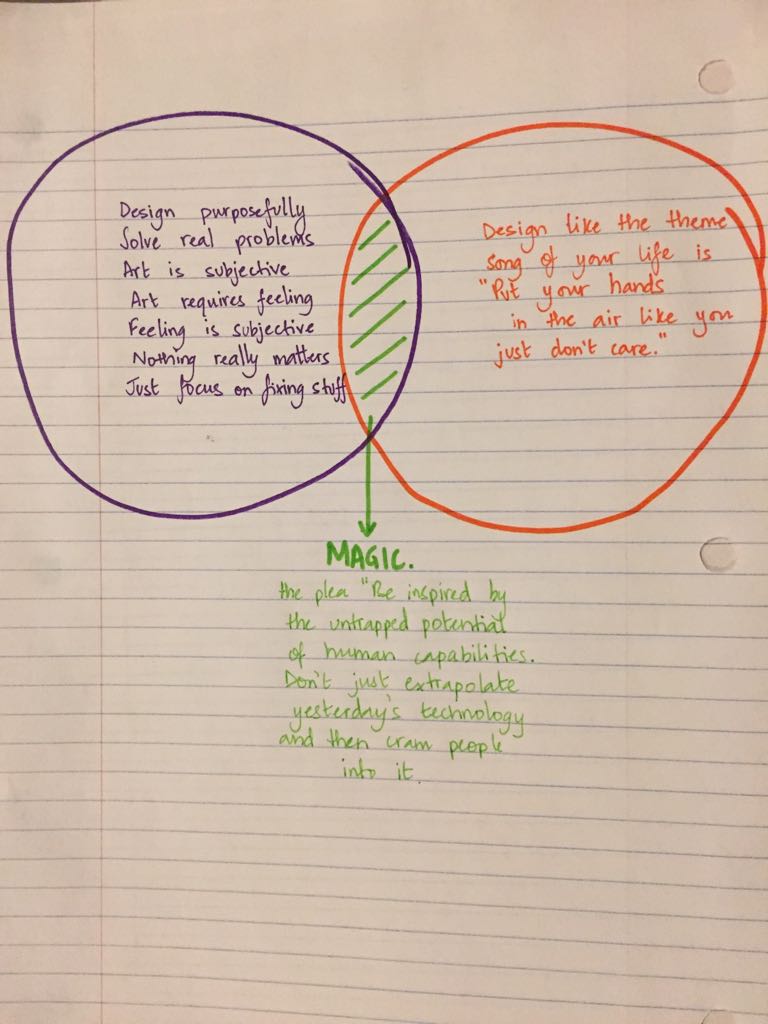 Design purposefully
Solve real problems
Art is subjective
Art requires feeling
Feeling is subjective
Nothing really matters
Just focus on fixing stuff
Design like the theme
song of your life is
"Put your hands
in the air like you
just don't care."
MAGIC.
the plea "Be inspired by
the untrapped potential
of human capabilities.
Don't just extrapolate
yesterday's technology
and then cram people
into it.